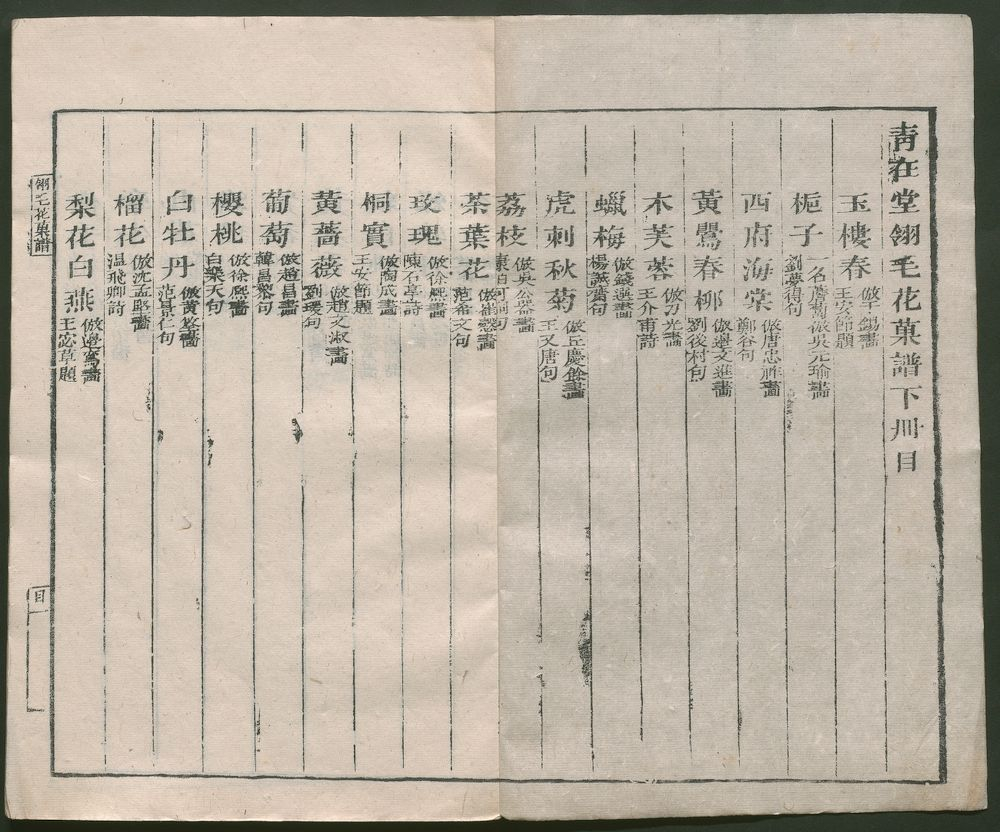 青在堂翎毛花菓譜下冊目
玉樓春 倣于錫畫
王安節題
梔子 一名薝蔔倣吳元瑜畫
劉夢得句
西府海棠 倣唐忠祚畫
鄭谷句
黃鸎春柳 倣邊文進畫
劉後村句
木芙蓉 倣刀光畫
王介甫詩
蠟梅 倣錢選畫
楊誠齋句
虎刺秋菊 倣丘慶餘畫
王又唐句
荔枝 倣吳公器畫
康伯可詞句
茶葉花 倣崔慤畫
范希文句
玫瑰 倣徐熙畫
陳石亭詩
桐實 倣陶成畫
王安節題
黃薔薇 倣趙文淑畫
劉瑗句
葡萄 倣趙昌畫
韓昌黎句
櫻桃 倣徐熙畫
白樂天句
白牡丹 倣黃筌畫
范景仁句
榴花 倣沈孟堅畫
温飛卿詩
梨花白燕 倣邊鸞畫
王宓草題
翎毛花菓譜
目